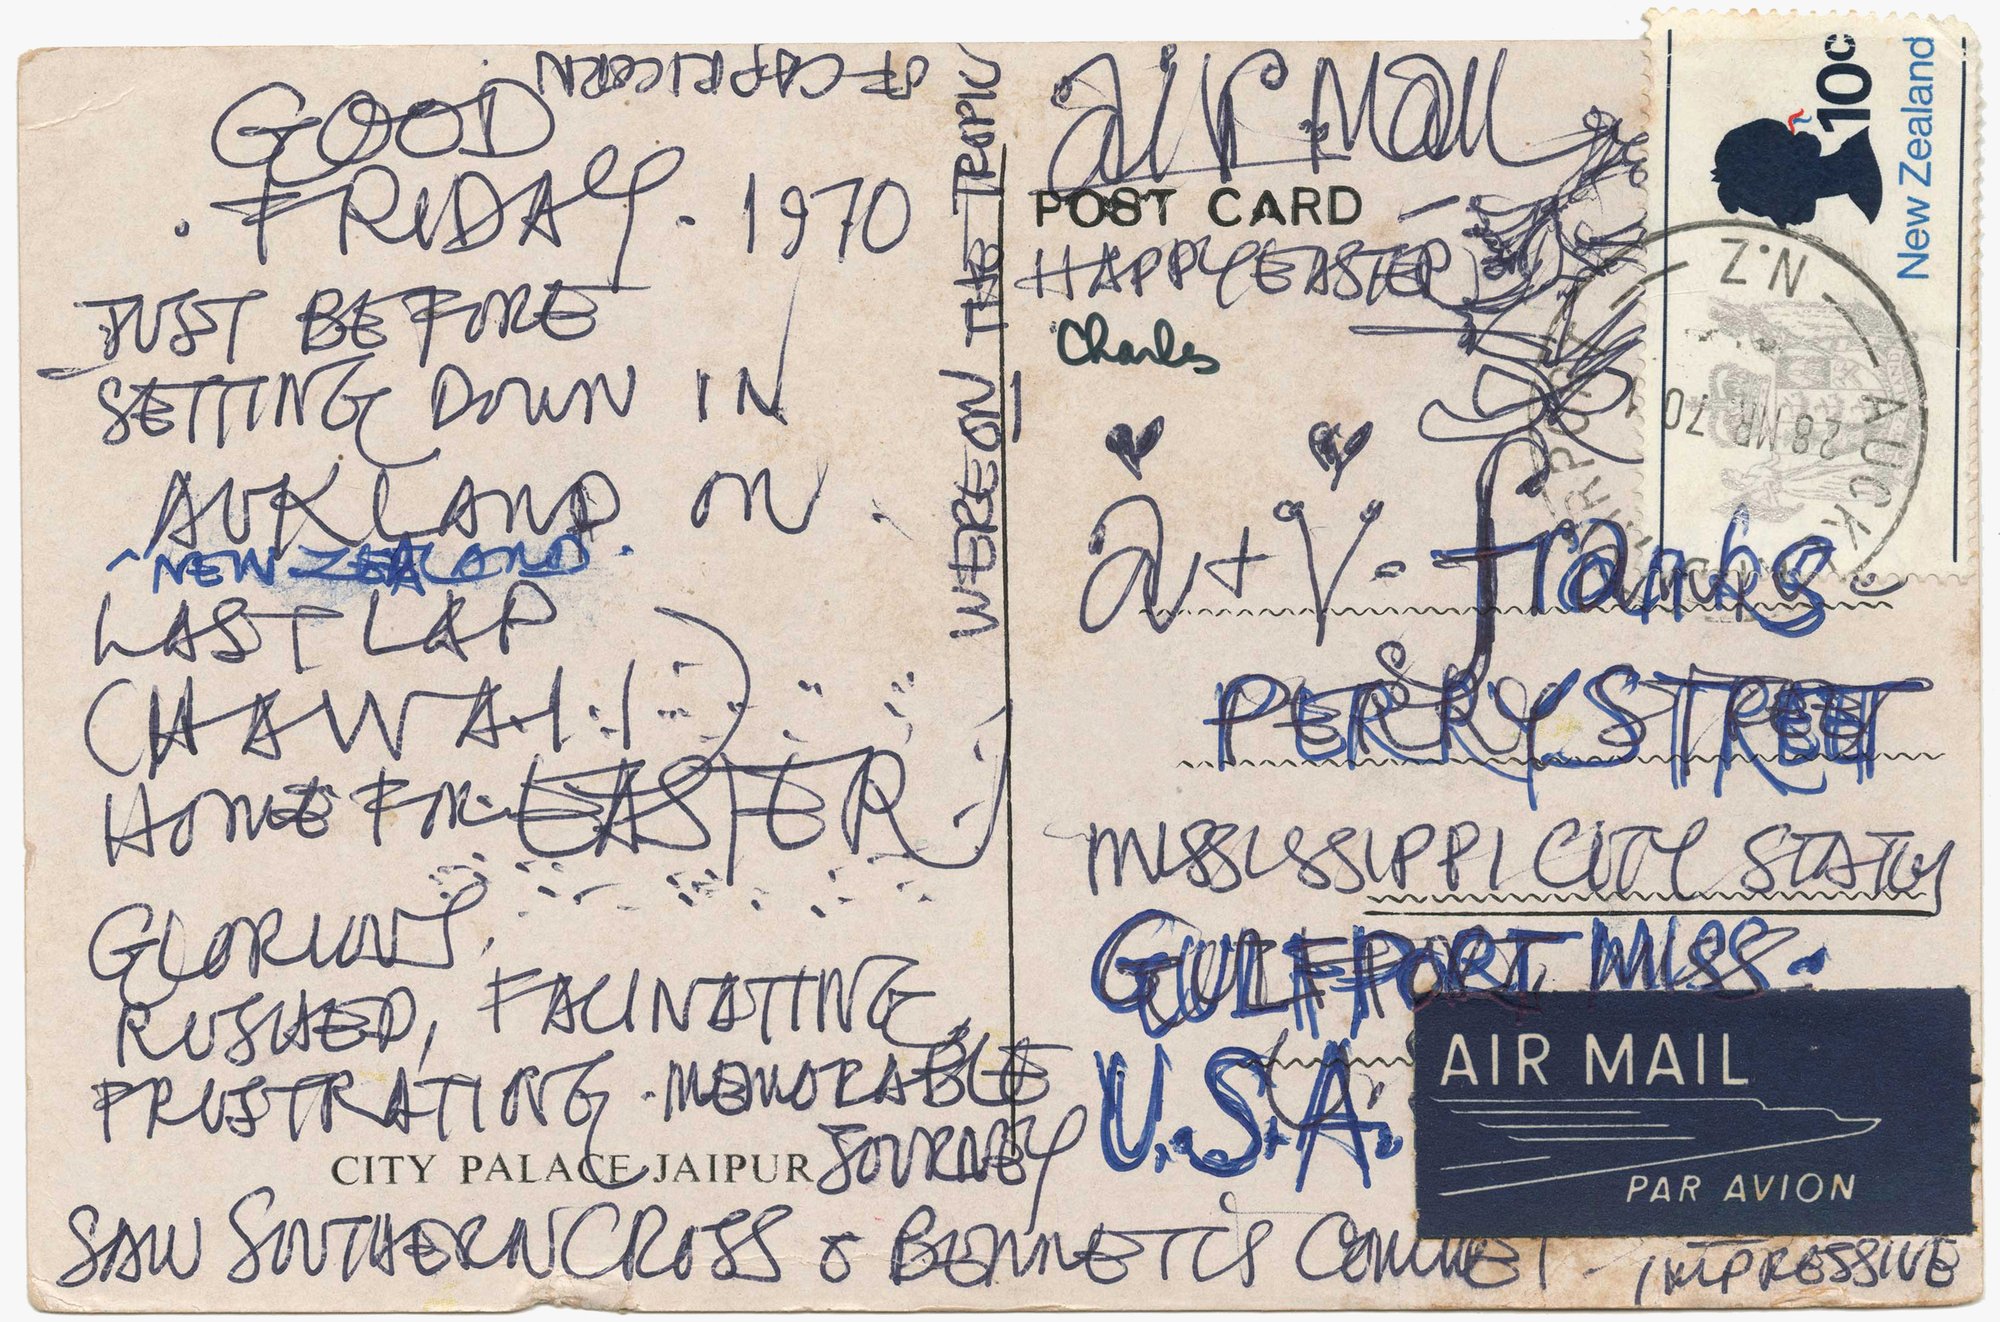 GOOD
. FRIDAY. 1970
JUST BEFORE
SETTING DOWN IN
AUKLAND ON
^ NEW ZEALAND.
LAST LAP
(HAWAII)
HOME FOR EASTER
GLORIOUS,
RUSHED, FACINATING,
FRUSTRATING. MEMORABLE
JOURNEY
CITY PALACE JAIPUR
SAW SOUTHERN CROSS & BENNETT'S COMMET - IMPRESSIVE
WEREON THE TROPIC
OF CAPRICORN
air mail
POST CARD
HAPPY EASTER
Charles
a + V. franks.
PERRY STREET
MISSISSIPPI CITY STATION
GULFPORT, MISS.
U.S.A.
AIR MAIL
PAR AVION
10c
New Zealand
AUCKLAND AIRPORT
N.Z
28 MR 70